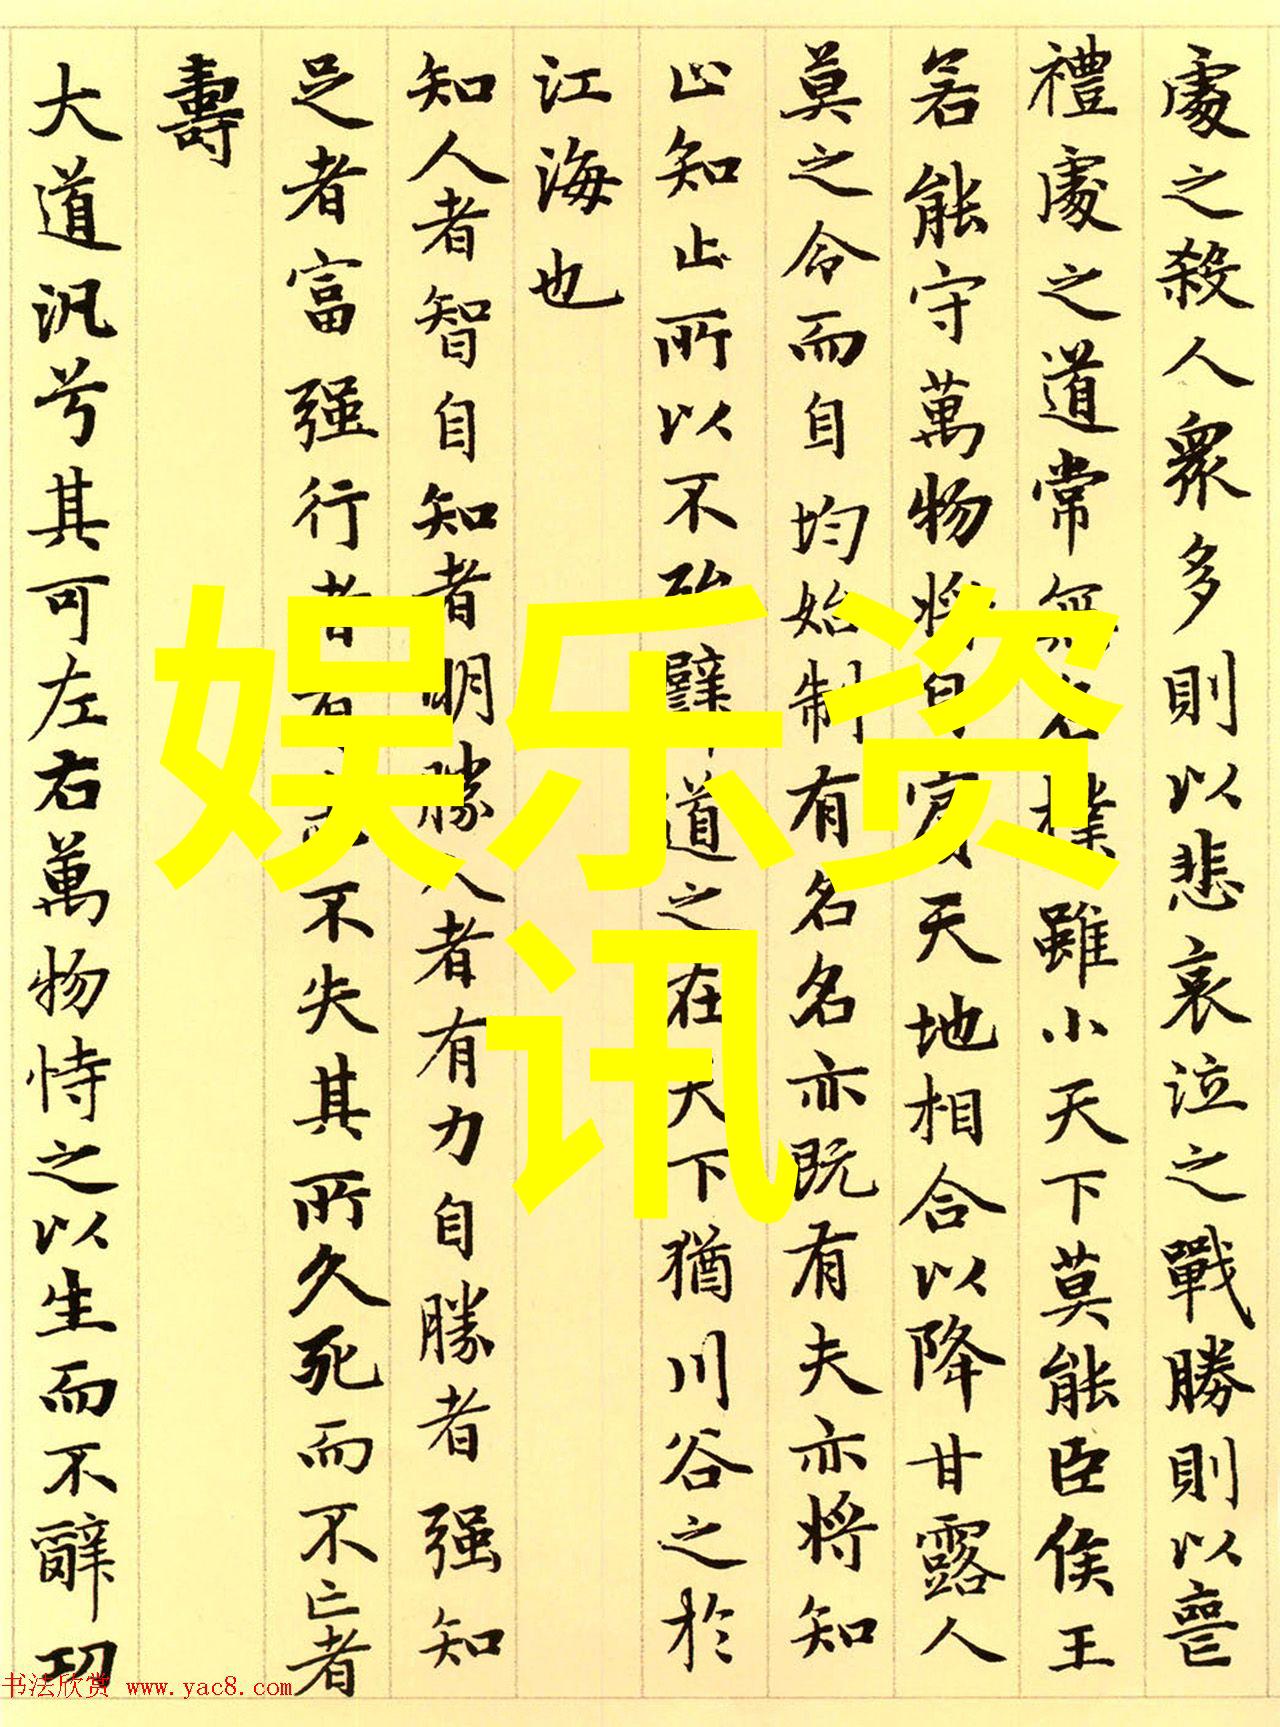 處之殺人衆多則以悲哀泣之戰勝則以喪
禮處之道常無名樸雖小天下莫能臣侯王
若能守萬物將自賓天地相合以降甘露人
莫之令而自均始制有名名亦既有夫亦将知
止知止所以不殆譬道之在天下猶川谷之於
江海也
知人者智自知者明勝人者有力自勝者强知
足者富强行者有志不失其所久死而不亡者
壽
大道汎兮其可左右萬物恃之以生而不辭功
娱乐资
讯
书法欣赏 www.yac8.com